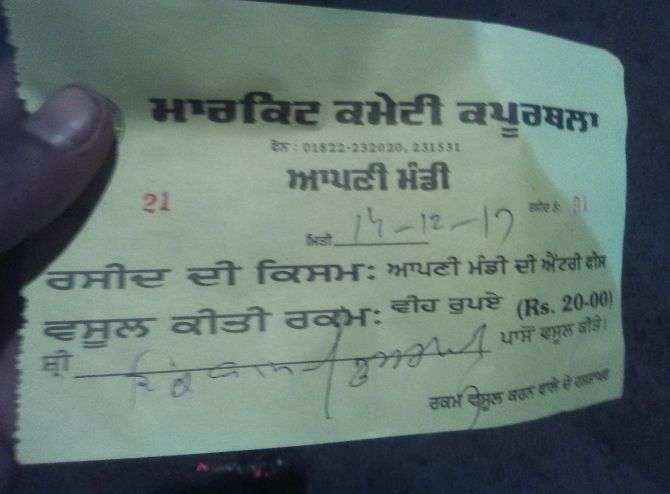 ਮਾਰਕਿਟ ਕਮੇਟੀ ਕਪੂਰਥਲਾ
ਫੋਨ : 01822-232020, 231531
ਆਪਣੀ ਮੰਡੀ
21 ਰਸੀਦ ਨੰ:
ਮਿਤੀ 14-12-17
ਰਸੀਦ ਦੀ ਕਿਸਮ: ਆਪਣੀ ਮੰਡੀ ਦੀ ਐਂਟਰੀ ਫੀਸ
ਵਸੂਲ ਕੀਤੀ ਰਕਮ: ਵੀਹ ਰੁਪਏ (Rs. 20-00)
ਸ਼੍ਰੀ ਪਾਸੋਂ ਵਸੂਲ ਕੀਤੇ।
ਰਕਮ ਵਸੂਲ ਕਰਨ ਵਾਲੇ ਦੇ ਹਸਤਾਖਰ